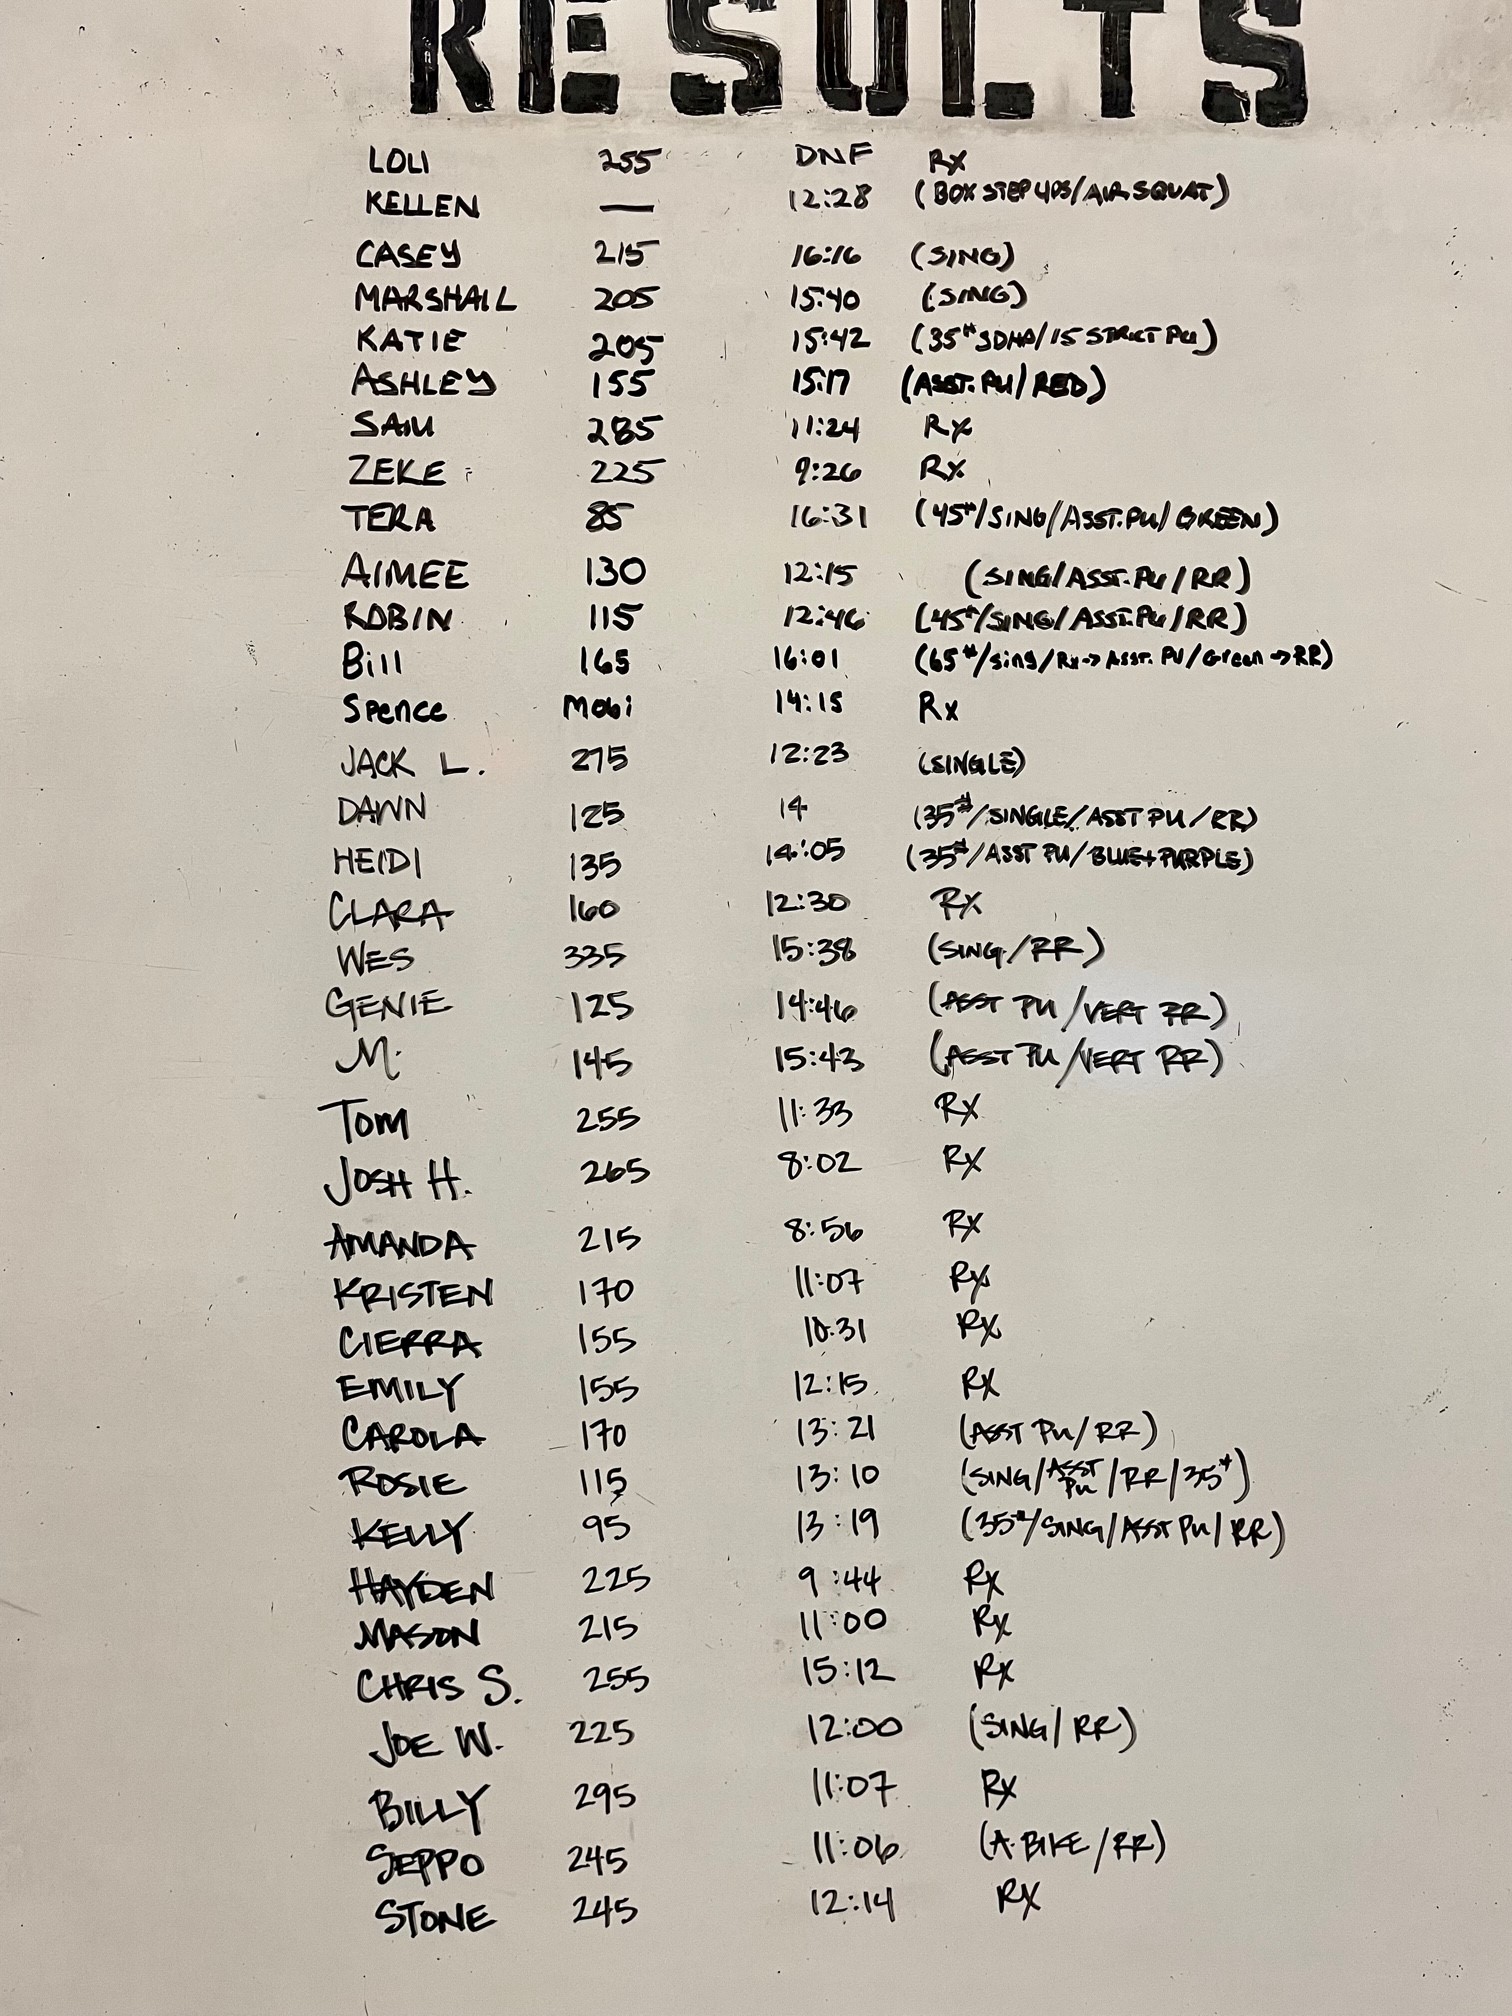 RESULTS
LOLI 255 DNF Rx
KELLEN — 12:28 (BOX STEP UPS/AIR SQUAT)
CASEY 215 16:16 (SING)
MARSHALL 205 15:40 (SING)
KATIE 205 15:42 (35# SDHP/15 STRICT PU)
ASHLEY 155 15:17 (ASST. PU/RED)
SAM 285 11:24 Rx
ZEKE 225 9:26 Rx
TERA 85 16:31 (45#/SING/ASST. PU/GREEN)
AIMEE 130 12:15 (SING/ASST. PU/RR)
ROBIN 115 12:46 (45#/SING/ASST. PU/RR)
Bill 165 16:01 (65#/Sing/Rx->ASST. PU/Green->RR)
Spence Mobi 14:15 Rx
JACK L. 275 12:23 (SINGLE)
DAWN 125 14 (35#/SINGLE/ASST PU/RR)
HEIDI 135 14:05 (35#/ASST PU/BLUE+PURPLE)
CLARA 160 12:30 RX
WES 335 15:38 (SING/RR)
GENIE 125 14:46 (ASST PU/VERT RR)
M. 145 15:43 (ASST PU/VERT RR)
Tom 255 11:33 RX
JOSH H. 265 8:02 RX
AMANDA 215 8:56 RX
KRISTEN 170 11:07 RX
CIERRA 155 10:31 RX
EMILY 155 12:15 RX
CAROLA 170 13:21 (ASST PU/RR)
ROSIE 115 13:10 (SING/ASST PU/RR/35#)
KELLY 95 13:19 (35#/SING/ASST PU/RR)
HAYDEN 225 9:44 Rx
MASON 215 11:00 Rx
CHRIS S. 255 15:12 Rx
JOE W. 225 12:00 (SING/RR)
BILLY 295 11:07 Rx
SEPPO 245 11:06 (A. BIKE/RR)
STONE 245 12:14 RX